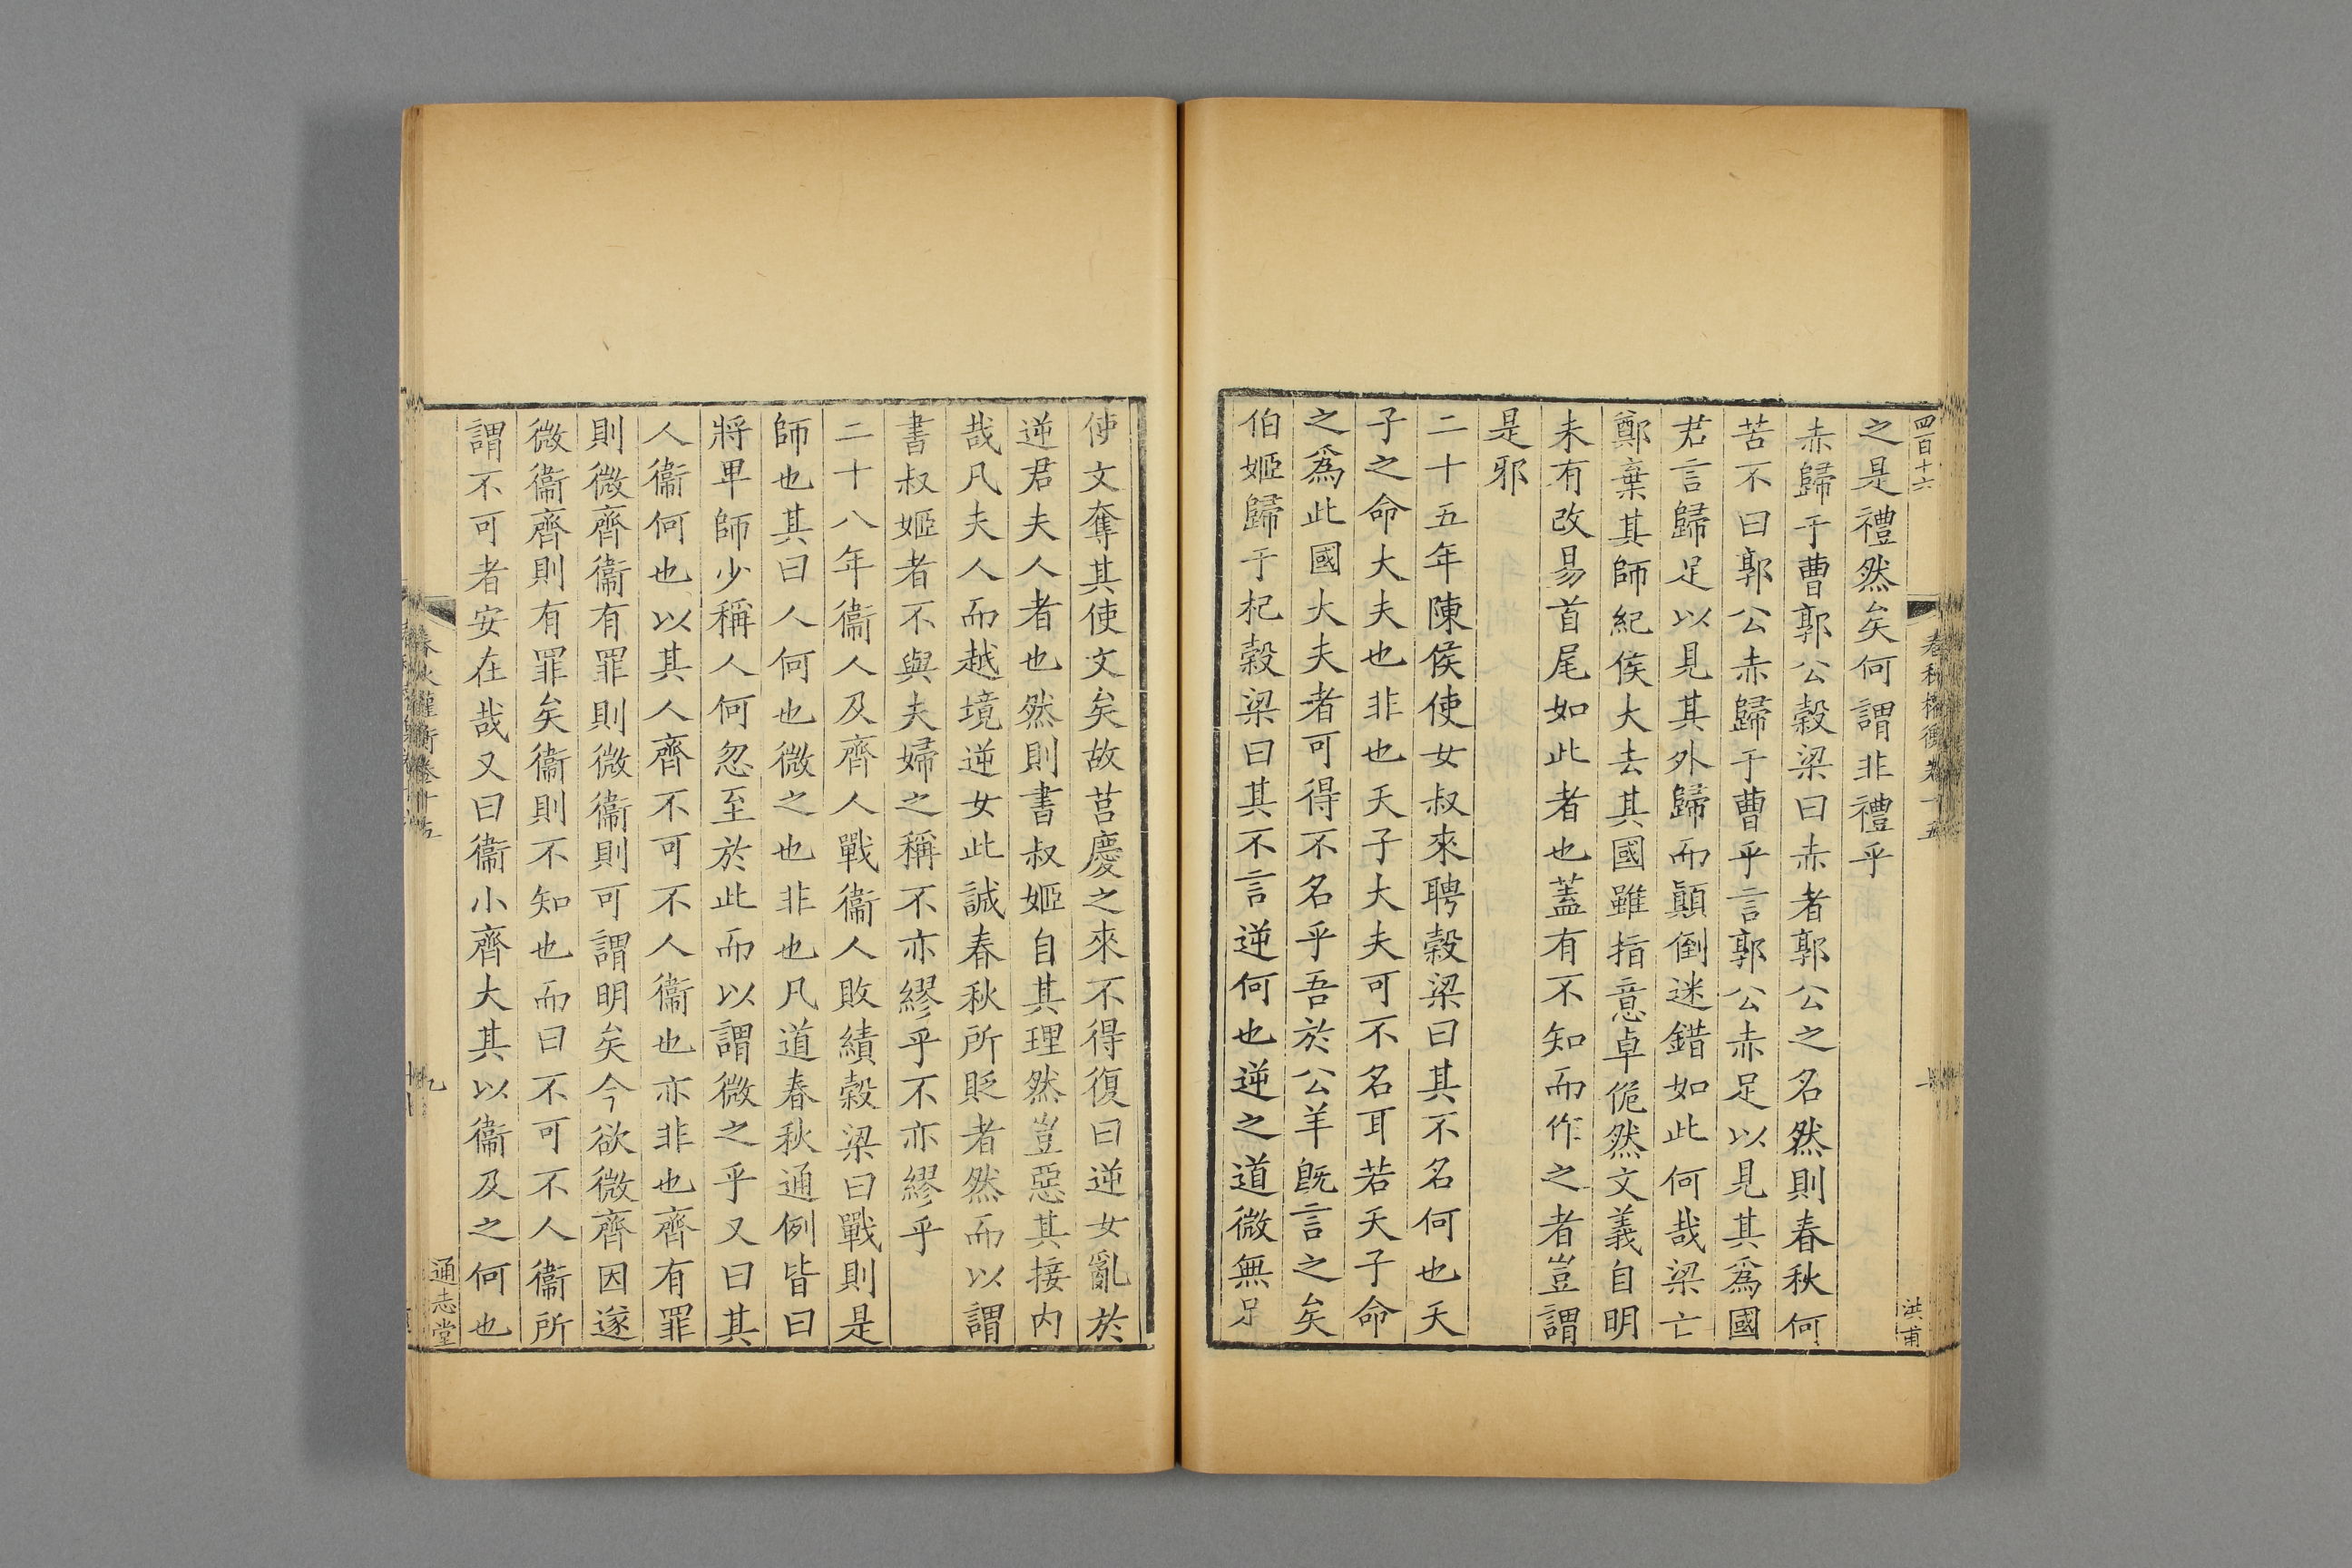 四百十六
之是禮然矣何謂非禮乎
赤歸于曹郭公穀梁曰赤者郭公之名然則春秋何
苦不曰郭公赤歸于曹乎言郭公赤足以見其爲國
君言歸足以見其外歸而顛倒迷錯如此何哉梁亡
鄭棄其師紀侯大去其國雖指意卓佹然文義自明
未有改易首尾如此者也蓋有不知而作之者豈謂
是邪
二十五年陳侯使女叔來聘穀梁曰其不名何也天
子之命大夫也非也天子大夫可不名耳若天子命
之爲此國大夫者可得不名乎吾於公羊旣言之矣
伯姬歸于杞穀梁曰其不言逆何也逆之道微無足
洪甫
使文奪其使文矣故莒慶之來不得復曰逆女亂於
逆君夫人者也然則書叔姬自其理然豈惡其接內
哉凡夫人而越境逆女此誠春秋所貶者然而以謂
書叔姬者不與夫婦之稱不亦繆乎不亦繆乎
二十八年衞人及齊人戰衞人敗績穀梁曰戰則是
師也其曰人何也微之也非也凡道春秋通例皆曰
將卑師少稱人何忽至於此而以謂微之乎又曰其
人衞何也以其人齊不可不人衞也亦非也齊有罪
則微齊衞有罪則微衞則可謂明矣今欲微齊因遂
微衞齊則有罪矣衞則不知也而曰不可不人衞所
謂不可者安在哉又曰衞小齊大其以衞及之何也
通志堂